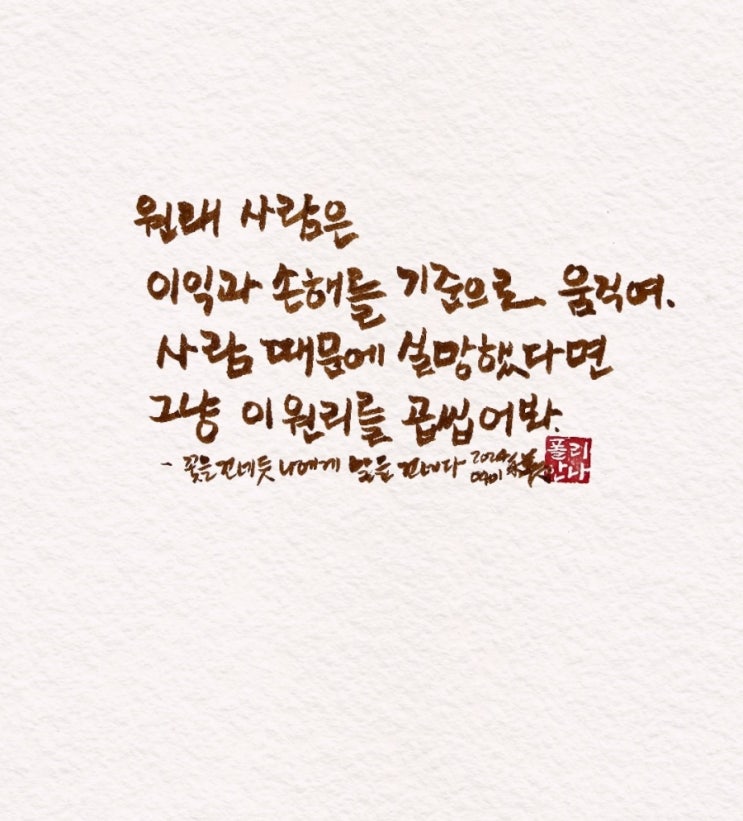 원래 사람은
이익과 손해를 기준으로 움직여.
사람 때문에 실망했다면
그냥 이 원리를 곱씹어봐.
- 꽃을 건네듯 나에게 말을 건네다 2024 0901
폴리안나